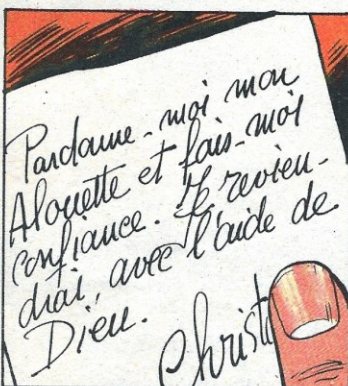 Pardonne-moi mon
Alouette et fais-moi
confiance. Je revien-
drai, avec l'aide de
Dieu.
Christ